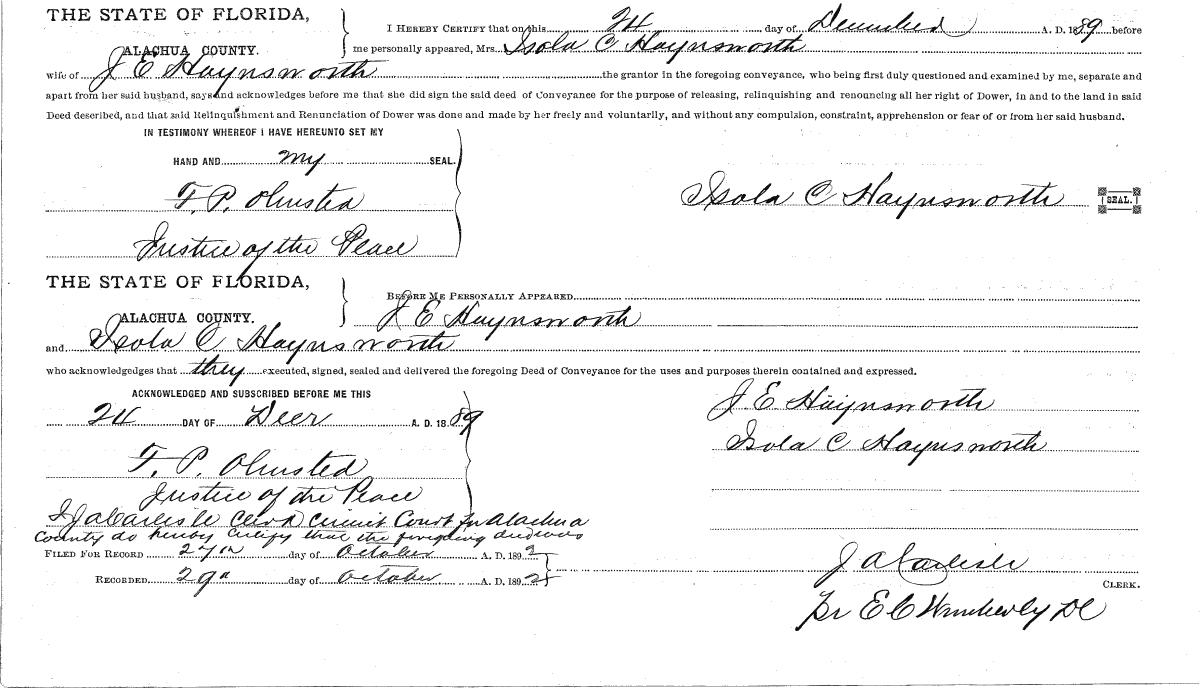 THE STATE OF FLORIDA,
I HEREBY CERTIFY that on this 24 day of December A. D. 1889 before
ALACHUA COUNTY.
me personally appeared, Mrs. Isola C Haynsworth
wife of J E Haynsworth the grantor in the foregoing conveyance, who being first duly questioned and examined by me, separate and
apart from her said husband, says and acknowledges before me that she did sign the said deed of Conveyance for the purpose of releasing, relinquishing and renouncing all her right of Dower, in and to the land in said
Deed described, and that said Relinquishment and Renunciation of Dower was done and made by her freely and voluntarily, and without any compulsion, constraint, apprehension or fear of or from her said husband.
IN TESTIMONY WHEREOF I HAVE HEREUNTO SET MY
HAND AND my SEAL.
F. P. Olmsted
Isola C Haynsworth SEAL.
Justice of the Peace
THE STATE OF FLORIDA,
BEFORE ME PERSONALLY APPEARED
ALACHUA COUNTY.
J E Haynsworth
and Isola C Haynsworth
who acknowledgedges that they executed, signed, sealed and delivered the foregoing Deed of Conveyance for the uses and purposes therein contained and expressed.
ACKNOWLEDGED AND SUBSCRIBED BEFORE ME THIS
24 DAY OF Decr A. D. 1889
J E Haynsworth
Isola C Haynsworth
F. P. Olmsted
Justice of the Peace
I J A Carlisle Clerk Circuit Court for Alachua
County do hereby certify that the foregoing deed was
FILED FOR RECORD 27th day of October A. D. 1892
RECORDED 29th day of October A. D. 1892
J A Carlisle
CLERK.
Pr E C Wimberly DC